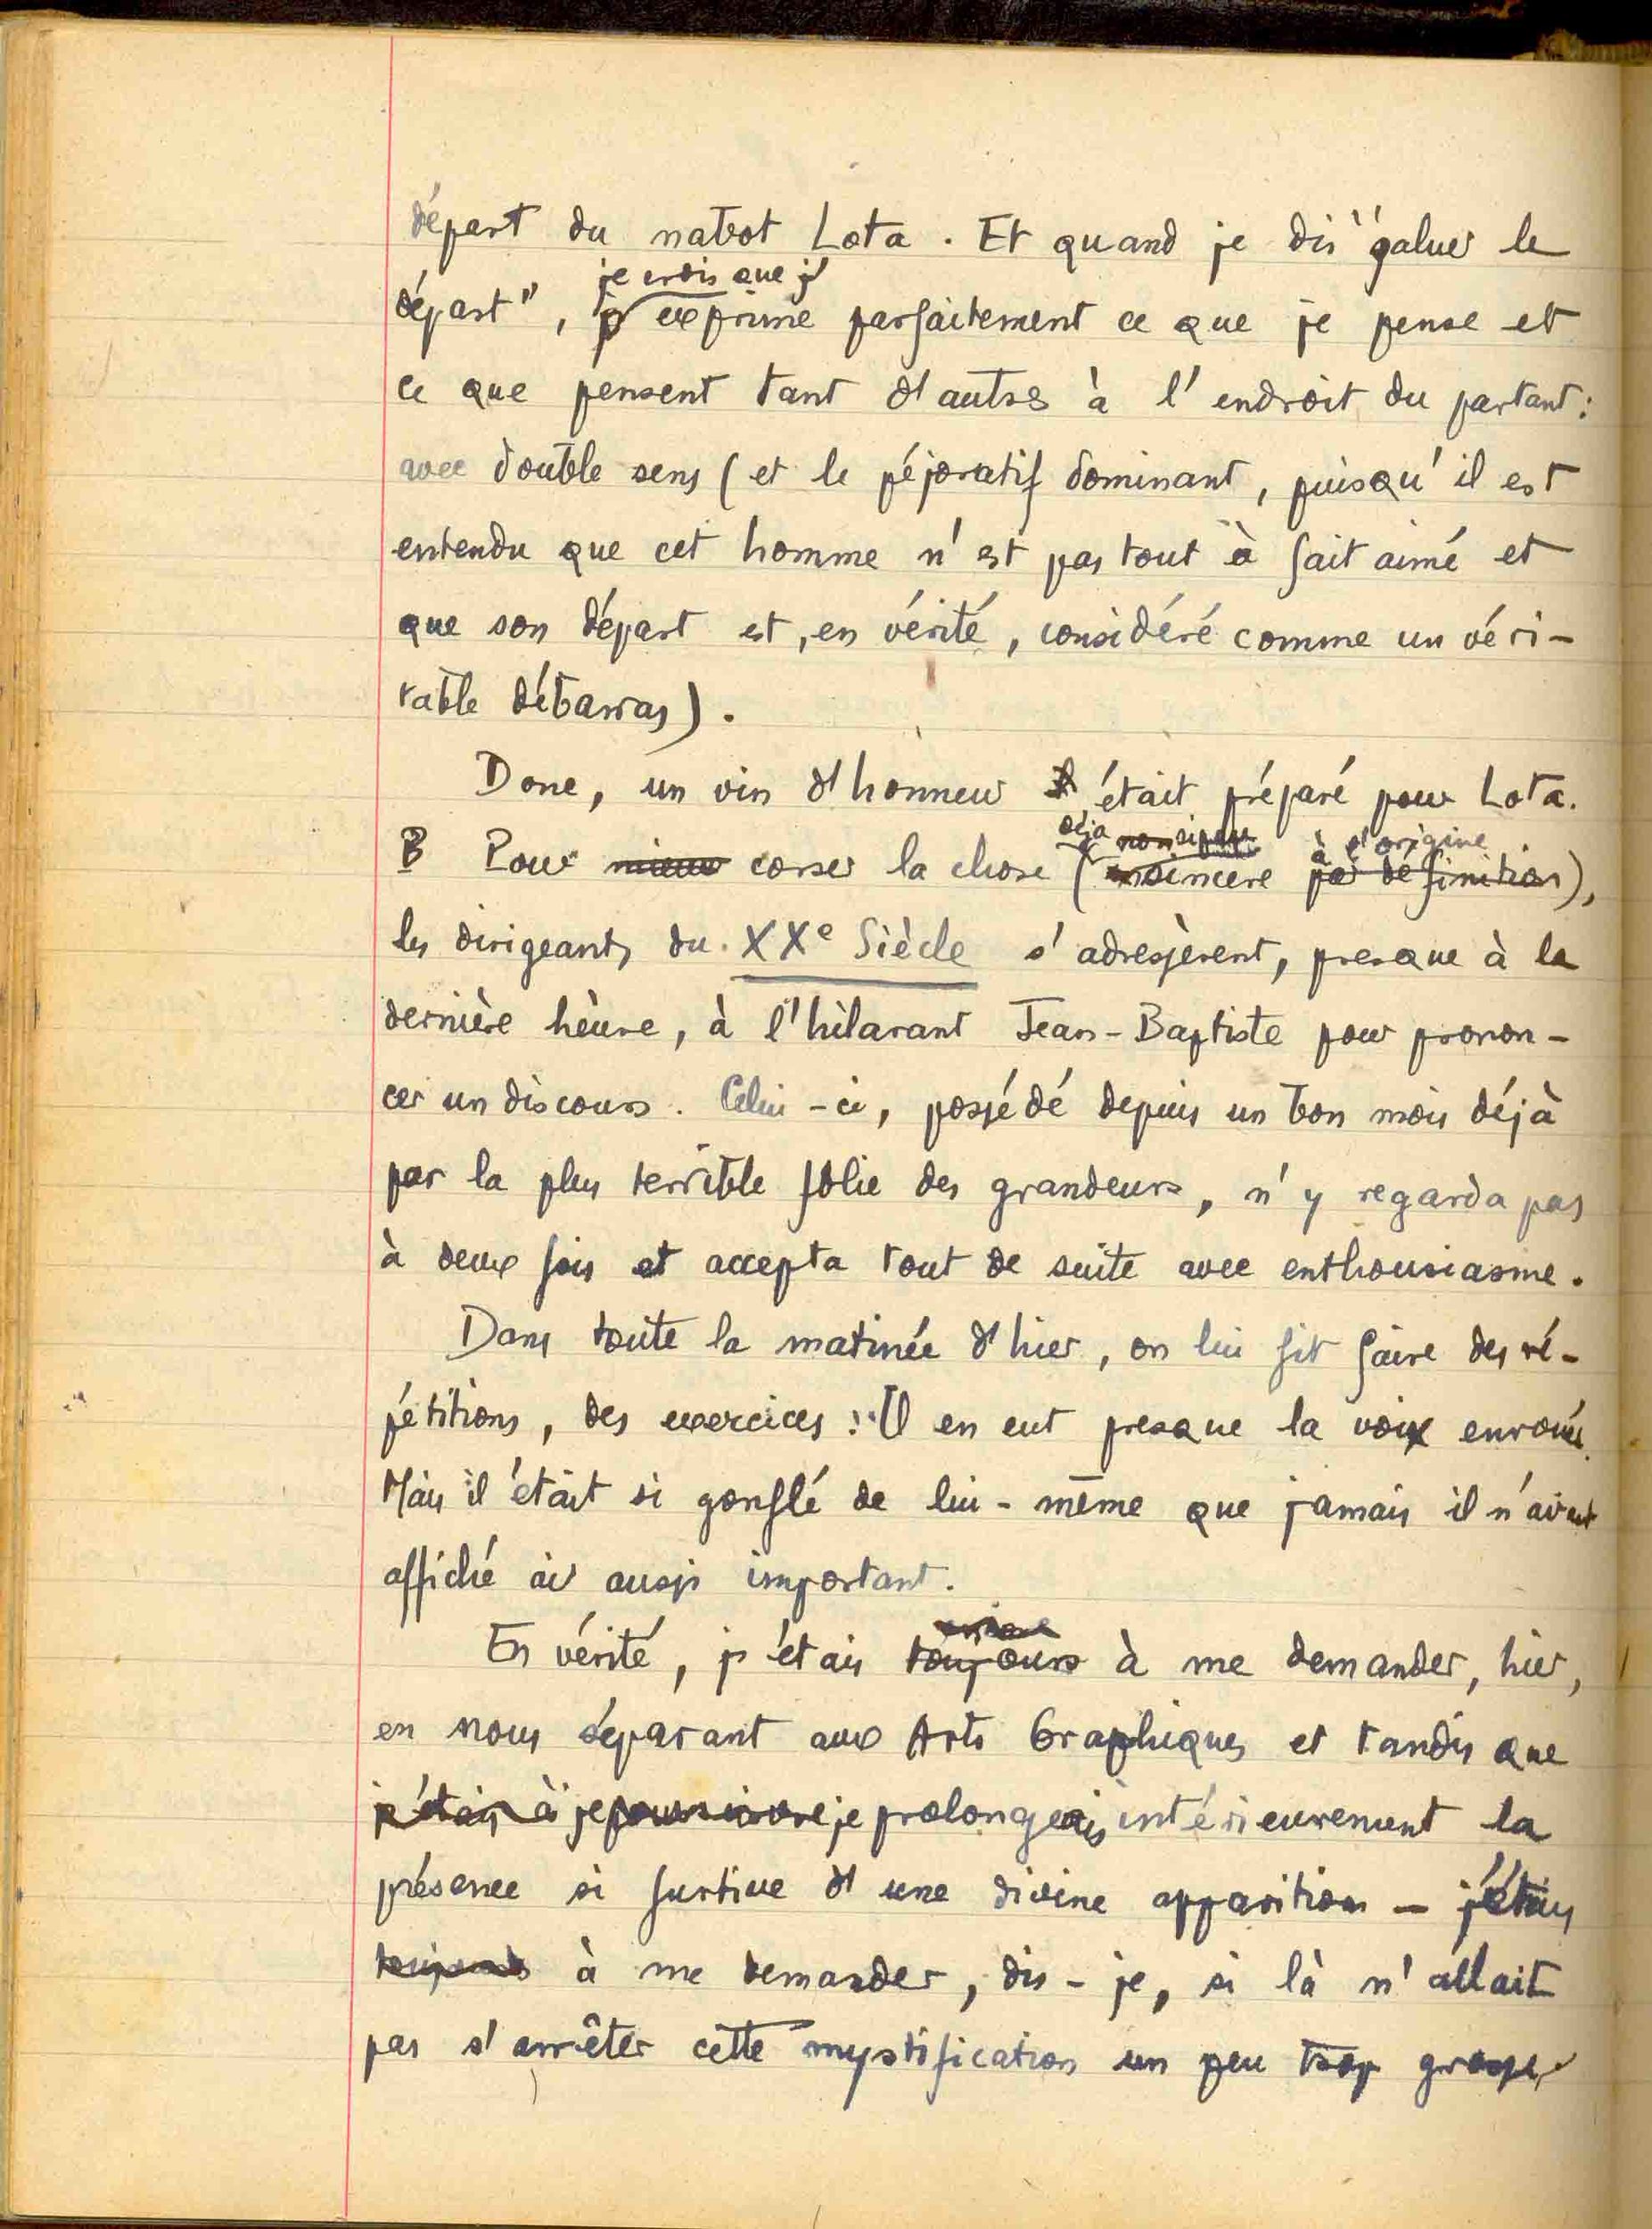 départ du nabot Lota. Et quand je dis "saluer le
je crois que j'
départ", j' exprime parfaitement ce que je pense et
ce que pensent tant d'autres à l'endroit du partant:
avec double sens (et le péjoratif dominant, puisqu'il est
entendu que cet homme n'est pas tout à fait aimé et
que son départ est, en vérité, considéré comme un véri-
table débarras).
Donc, un vin d'honneur était préparé pour Lota.
déjà à l'origine
Pour mieux corser la chose (insincère par définition),
les dirigeants du XXe Siècle s'adressèrent, presque à la
dernière heure, à l'hilarant Jean-Baptiste pour pronon-
cer un discours. Celui-ci, possédé depuis un bon mois déjà
par la plus terrible folie des grandeurs, n'y regarda pas
à deux fois et accepta tout de suite avec enthousiasme.
Dans toute la matinée d'hier, on lui fit faire des ré-
pétitions, des exercices: Il en eut presque la voix enrouée.
Mais il était si gonflé de lui-même que jamais il n'avait
affiché air aussi important.
En vérité, j'étais toujours à me demander, hier,
en nous séparant aux Arts Graphiques et tandis que
j'étais à je poursuivre je prolongeais intérieurement la
présence si furtive d'une divine apparition - j'étais
toujours à me demander, dis-je, si là n'allait
pas s'arrêter cette mystification un peu trop grosse